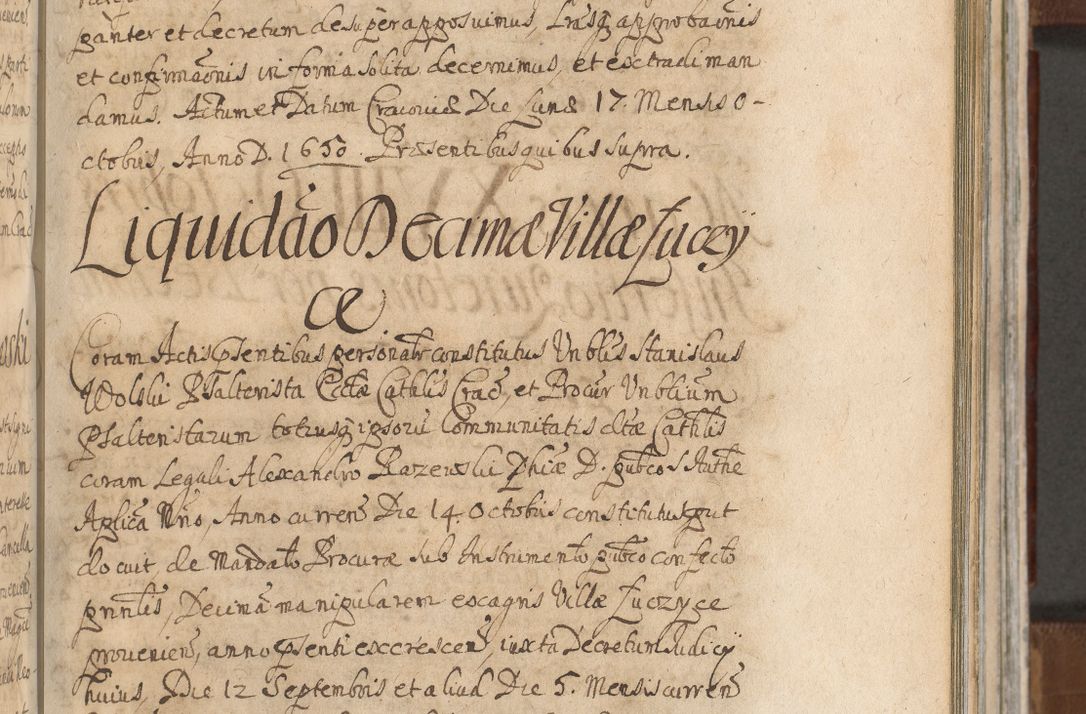 ganter et decretum desuper apposuimus, Lrasq approbaõnis
et confirmaõnis in forma solita decernimus, et extradi man
damus. Actum et Datum Cracoviæ Die Lunæ 17. Mensis O-
ctobris, Anno D. 1650. Præsentibus quibus supra.
Liquidão Decimæ Villæ Łuczy
ce
Coram Actis pẽsentibus personalr constitutus Vnblis Stanislaus
Wolski Psalterista Ecclæ Cathlis Crac, et Procur Vnblium
Psalteristarum totiusq ipsorũ Communitatis dtæ Cathlis
coram Legali Alexandro Razewski Phiæ D. pubco S. Authe
Aplica Nrio, Anno curren Die 14. Octobris constitutus put
docuit, de Mandato Procuræ sub Instrumento pubco confecto
pnntis, Decimã manipularem ex agris Villæ Łuczyce
provenien, anno pẽsenti excrescen, iuxta Decretum Iudicij
huius, Die 12 Septembris et aliud Die 5. Mensis curren